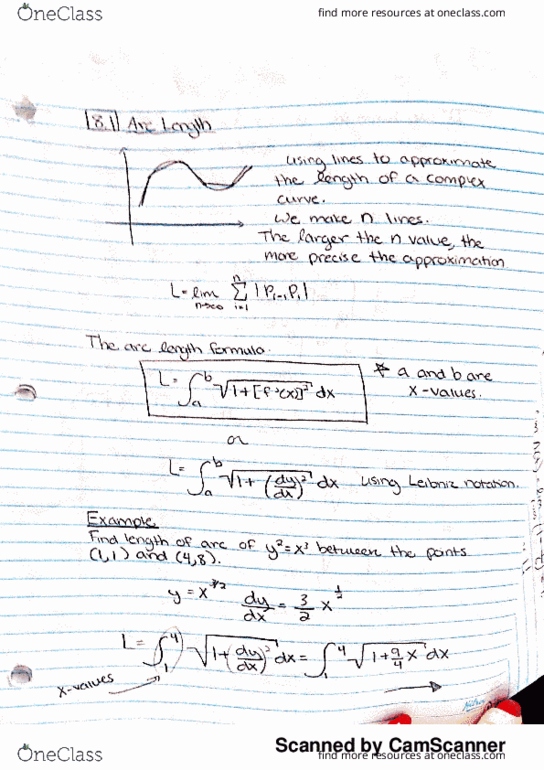 OneClass
find more resources at oneclass.com
8.1 Arc Length
using lines to approximate
the length of a complex
curve.
We make n lines.
The larger the n value, the
more precise the approximation
L = lim n→∞ n Σ i=1 |Pi-1 Pi|
The arc length formula.
L = ∫ₐᵇ √1+[f'(x)]² dx
* a and b are
x-values.
or
L = ∫ₐᵇ √1+(dy/dx)² dx using Leibniz notation.
Example.
Find length of arc of y²=x³ between the points
(1,1) and (4,8).
y = x^3/2 dy/dx = 3/2 x^1/2
L = ∫₁⁴ √1+(dy/dx)² dx = ∫₁⁴ √1+9/4 x dx
x-values
Scanned by CamScanner
OneClass
find more resources at oneclass.com